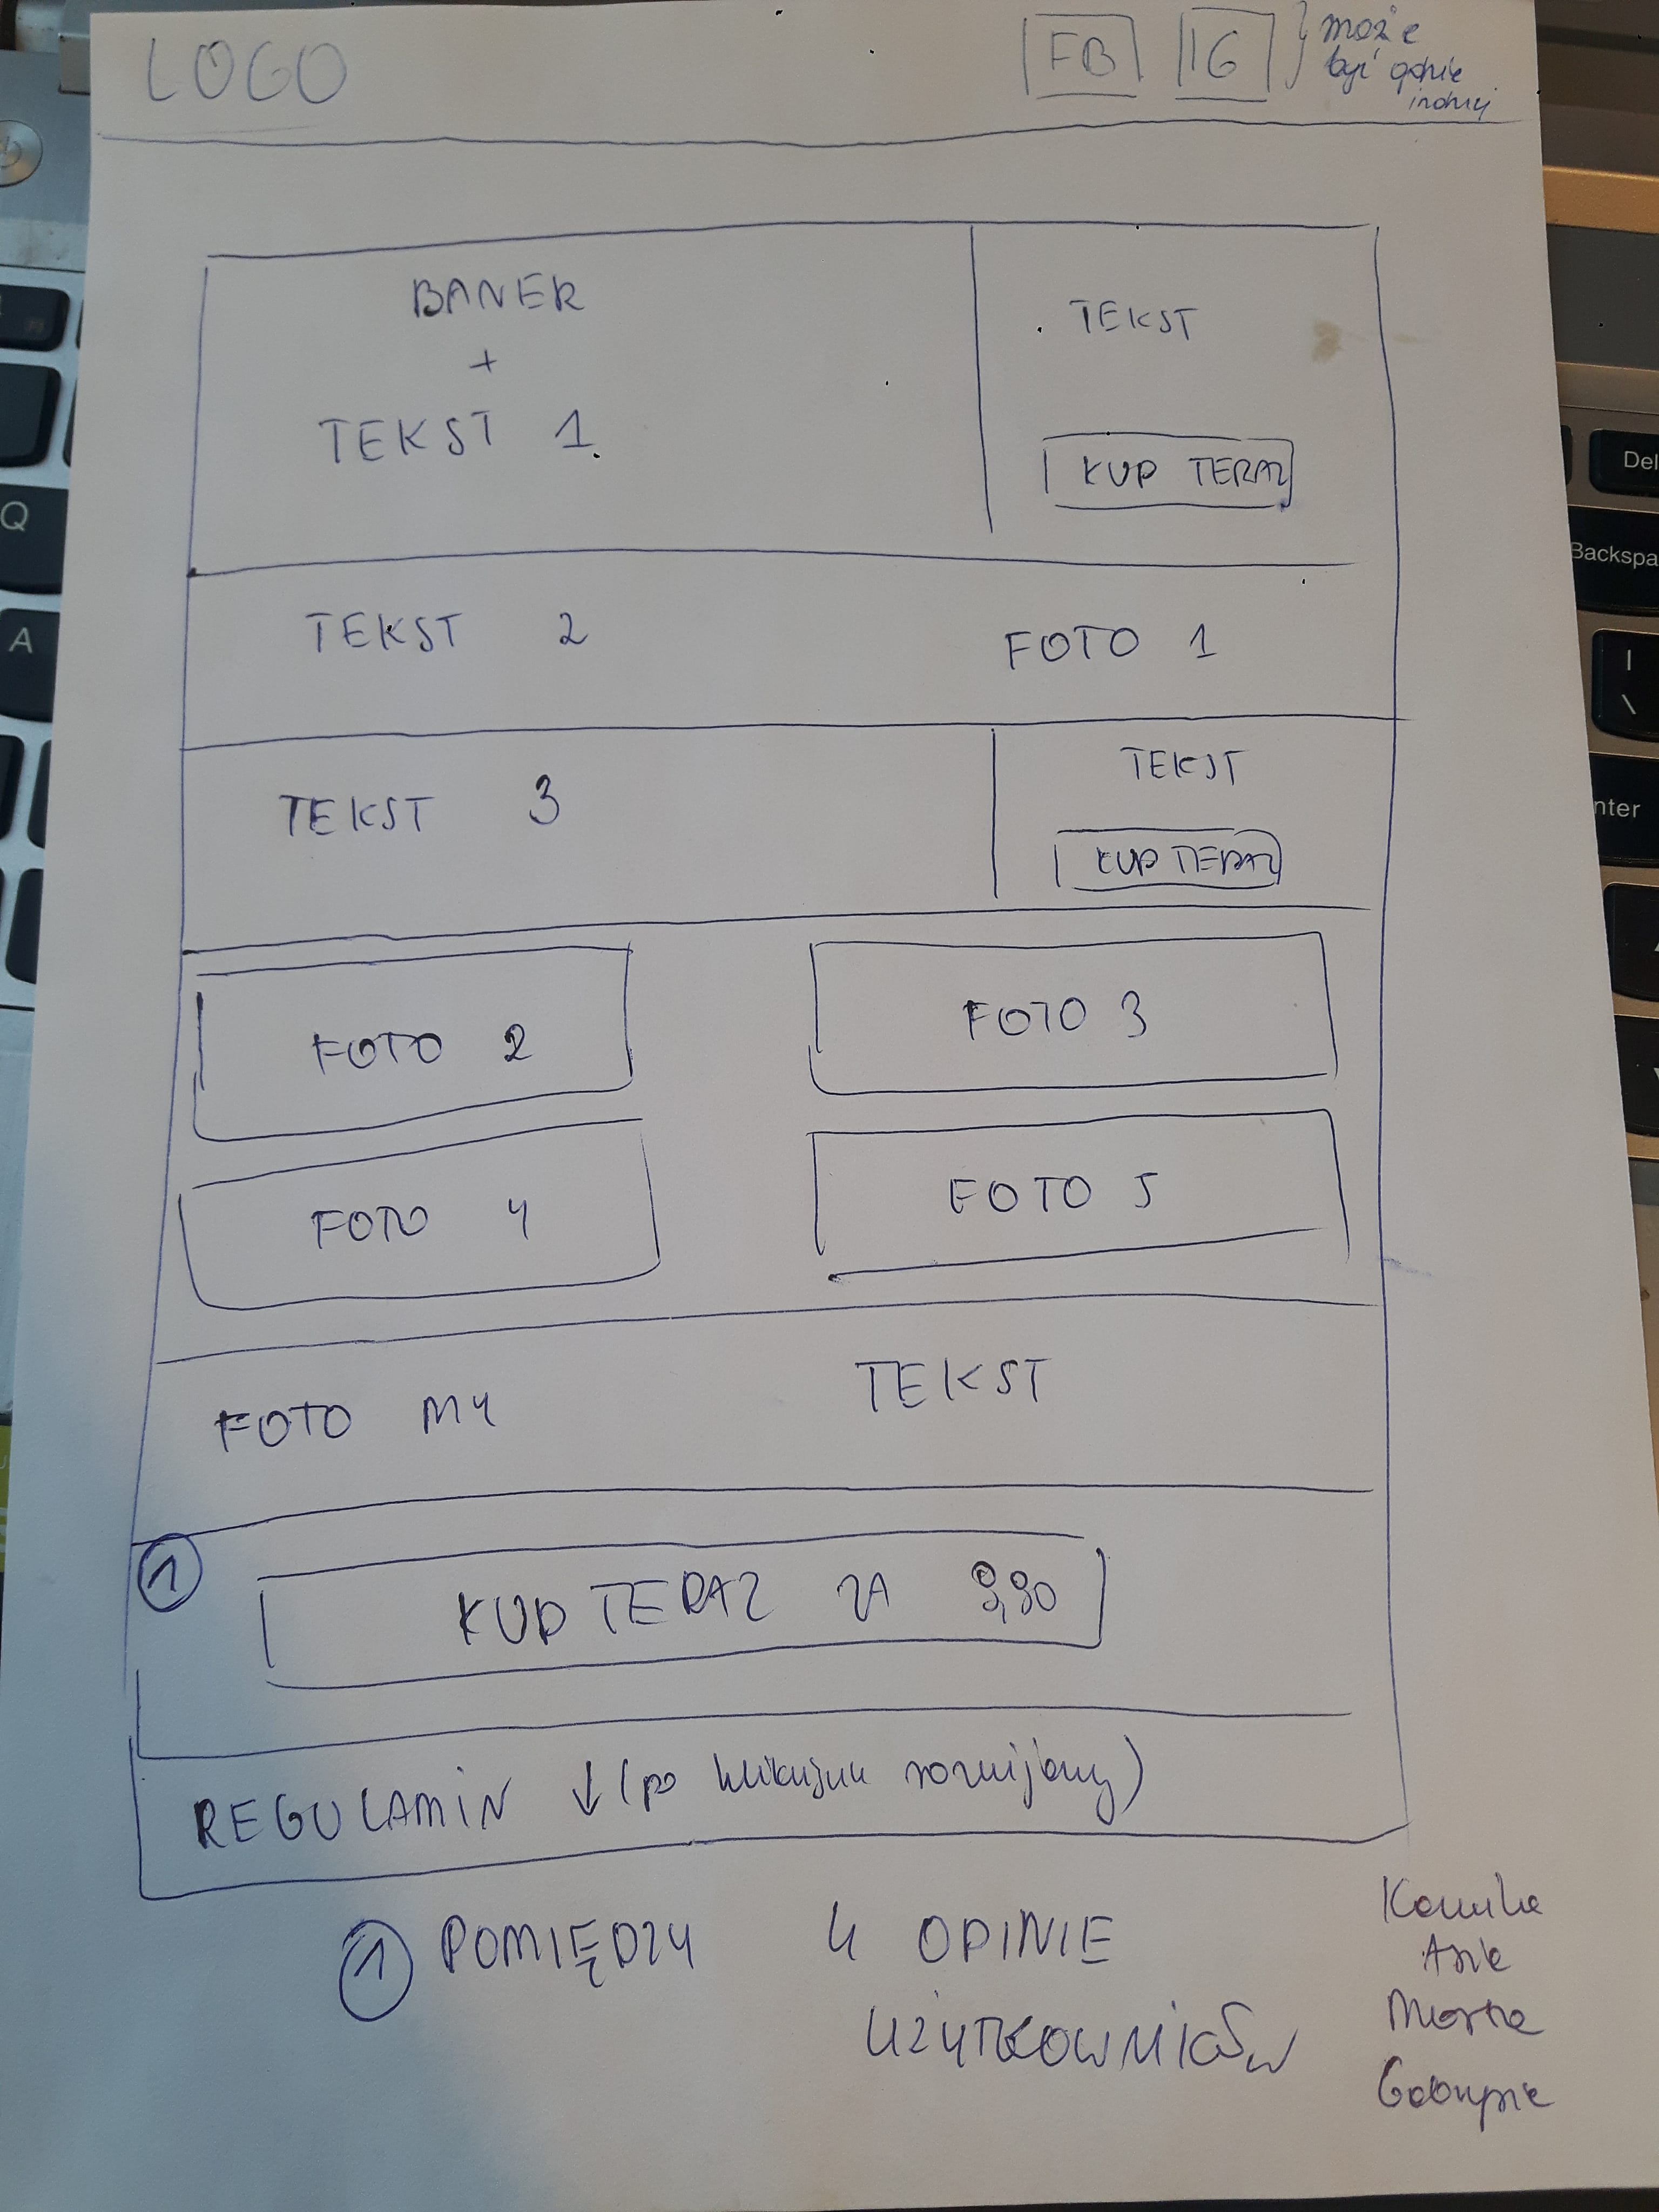 LOGO
FB IG może
być gdzie
indziej
BANER
+
TEKST 1
TEKST
KUP TERAZ
TEKST 2 FOTO 1
TEKST 3
TEKST
KUP TERAZ
FOTO 2 FOTO 3
FOTO 4 FOTO 5
FOTO MY TEKST
1 KUP TERAZ ZA 9,90
REGULAMIN ↓ (po kliknięciu rozwijany)
1 POMIĘDZY 4 OPINIE
UŻYTKOWNIKÓW
Kamila
Asia
Marta
Gabrysia
Q
A
Del
Backspa
nter